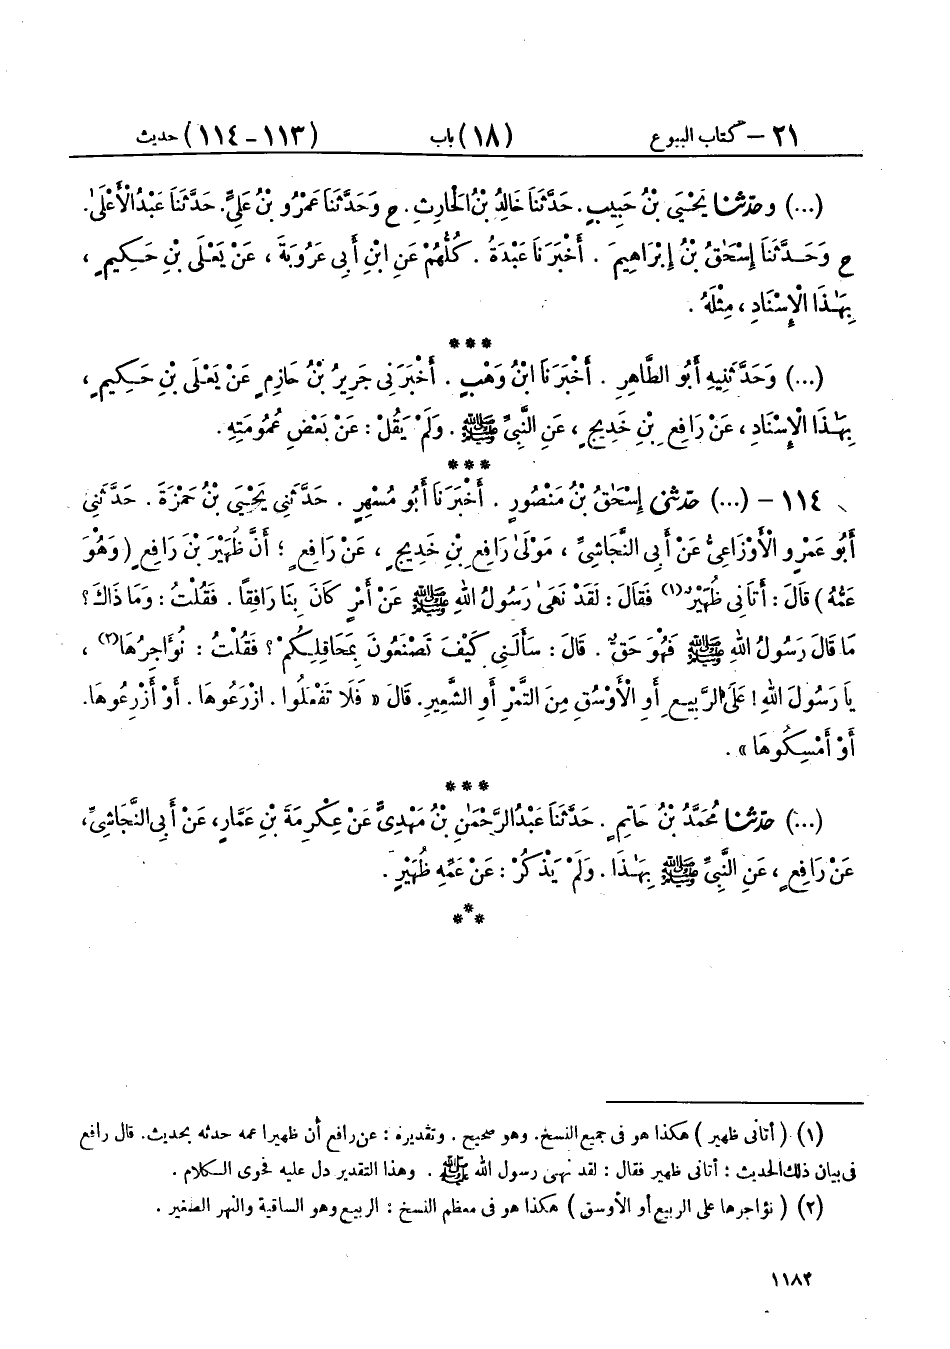 ٢١ – كتاب البيوع (١٨) باب (١١٣ - ١١٤) حديث
(...) وحَدَّثَنَا يَحْيَى بْنُ حَبِيبٍ. حَدَّثَنَا خَالِدُ بْنُ الْحَارِثِ. ح وَحَدَّثَنَا عَمْرُو بْنُ عَلِيٍّ. حَدَّثَنَا عَبْدُ الْأَعْلَىٰ.
ح وَحَدَّثَنَا إِسْحَٰقُ بْنُ إِبْرَاهِيمَ. أَخْبَرَنَا عَبْدَةُ. كُلُّهُمْ عَنِ ابْنِ أَبِي عَرُوبَةَ، عَنْ يَعْلَى بْنِ حَكِيمٍ،
بِهَٰذَا الْإِسْنَادِ، مِثْلَهُ.
***
(...) وَحَدَّثَنِيهِ أَبُو الطَّاهِرِ. أَخْبَرَنَا ابْنُ وَهْبٍ. أَخْبَرَنِي جَرِيرُ بْنُ حَازِمٍ عَنْ يَعْلَى بْنِ حَكِيمٍ،
بِهَٰذَا الْإِسْنَادِ، عَنْ رَافِعِ بْنِ خَدِيجٍ، عَنِ النَّبِيِّ ﷺ. وَلَمْ يَقُلْ: عَنْ بَعْضِ عُمُومَتِهِ.
***
١١٤ – (...) حَدَّثَنِي إِسْحَٰقُ بْنُ مَنْصُورٍ. أَخْبَرَنَا أَبُو مُسْهِرٍ. حَدَّثَنِي يَحْيَى بْنُ حَمْزَةَ. حَدَّثَنِي
أَبُو عَمْرٍو الْأَوْزَاعِيُّ عَنْ أَبِي النَّجَاشِيِّ، مَوْلَىٰ رَافِعِ بْنِ خَدِيجٍ، عَنْ رَافِعٍ؛ أَنَّ ظُهَيْرَ بْنَ رَافِعٍ (وَهُوَ
عَمُّهُ) قَالَ: أَتَانِي ظُهَيْرٌ(١) فَقَالَ: لَقَدْ نَهَىٰ رَسُولُ اللهِ ﷺ عَنْ أَمْرٍ كَانَ بِنَا رَافِقًا. فَقُلْتُ: وَمَا ذَاكَ؟
مَا قَالَ رَسُولُ اللهِ ﷺ فَهُوَ حَقٌّ. قَالَ: سَأَلَنِي كَيْفَ تَصْنَعُونَ بِمَحَاقِلِكُمْ؟ فَقُلْتُ: نُؤَاجِرُهَا(٢)،
يَا رَسُولَ اللهِ! عَلَى الرَّبِيعِ أَوِ الْأَوْسُقِ مِنَ التَّمْرِ أَوِ الشَّعِيرِ. قَالَ «فَلَا تَفْعَلُوا. ازْرَعُوهَا. أَوْ أَزْرِعُوهَا.
أَوْ أَمْسِكُوهَا».
***
(...) حَدَّثَنَا مُحَمَّدُ بْنُ حَاتِمٍ. حَدَّثَنَا عَبْدُ الرَّحْمَٰنِ بْنُ مَهْدِيٍّ عَنْ عِكْرِمَةَ بْنِ عَمَّارٍ، عَنْ أَبِي النَّجَاشِيِّ،
عَنْ رَافِعٍ، عَنِ النَّبِيِّ ﷺ بِهَٰذَا. وَلَمْ يَذْكُرْ: عَنْ عَمِّهِ ظُهَيْرٍ.
***
(١) (أتانى ظهير) هكذا هو فى جميع النسخ. وهو صحيح. وتقديره: عن رافع أن ظهيرا عمه حدثه بحديث. قال رافع
فى بيان ذلك الحديث: أتانى ظهير فقال: لقد نهى رسول الله ﷺ. وهذا التقدير دل عليه فحوى الكلام.
(٢) (نؤاجرها على الربيع أو الأوسق) هكذا هو فى معظم النسخ: الربيع وهو الساقية والنهر الصغير.
١١٨٣